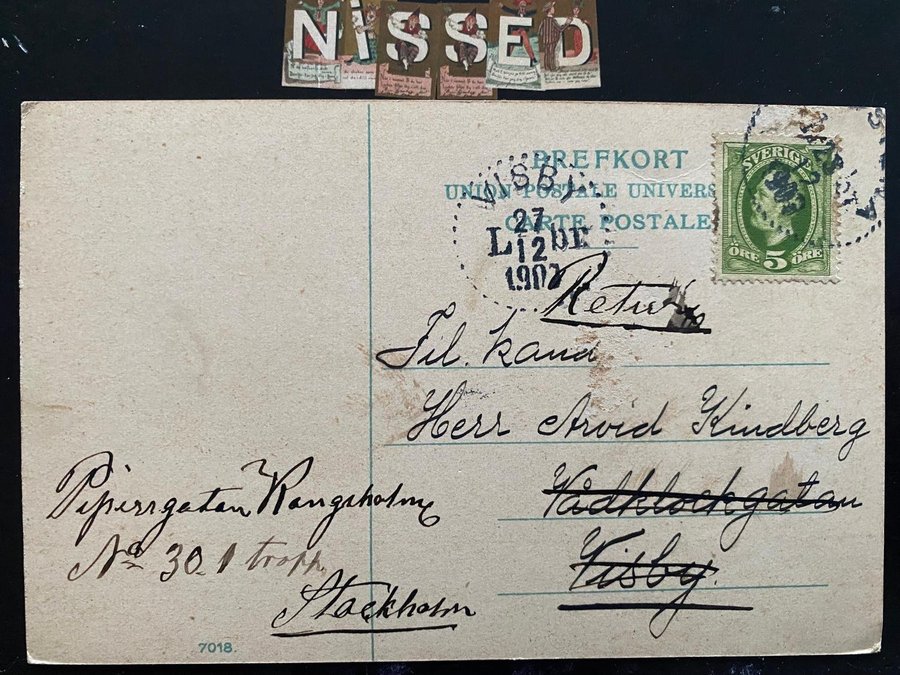 NiSSED
BREFKORT
UNION POSTALE UNIVERS
CARTE POSTALE
SVERIGE
ÖRE 5 ÖRE
VISBY
27
12
L BE
Retur
Fil. kand
Herr Arvid Kindberg
Vådklockgatan
Visby
Pipersgatan Kungsholm
No 30 1 tropp
Stockholm
7018.